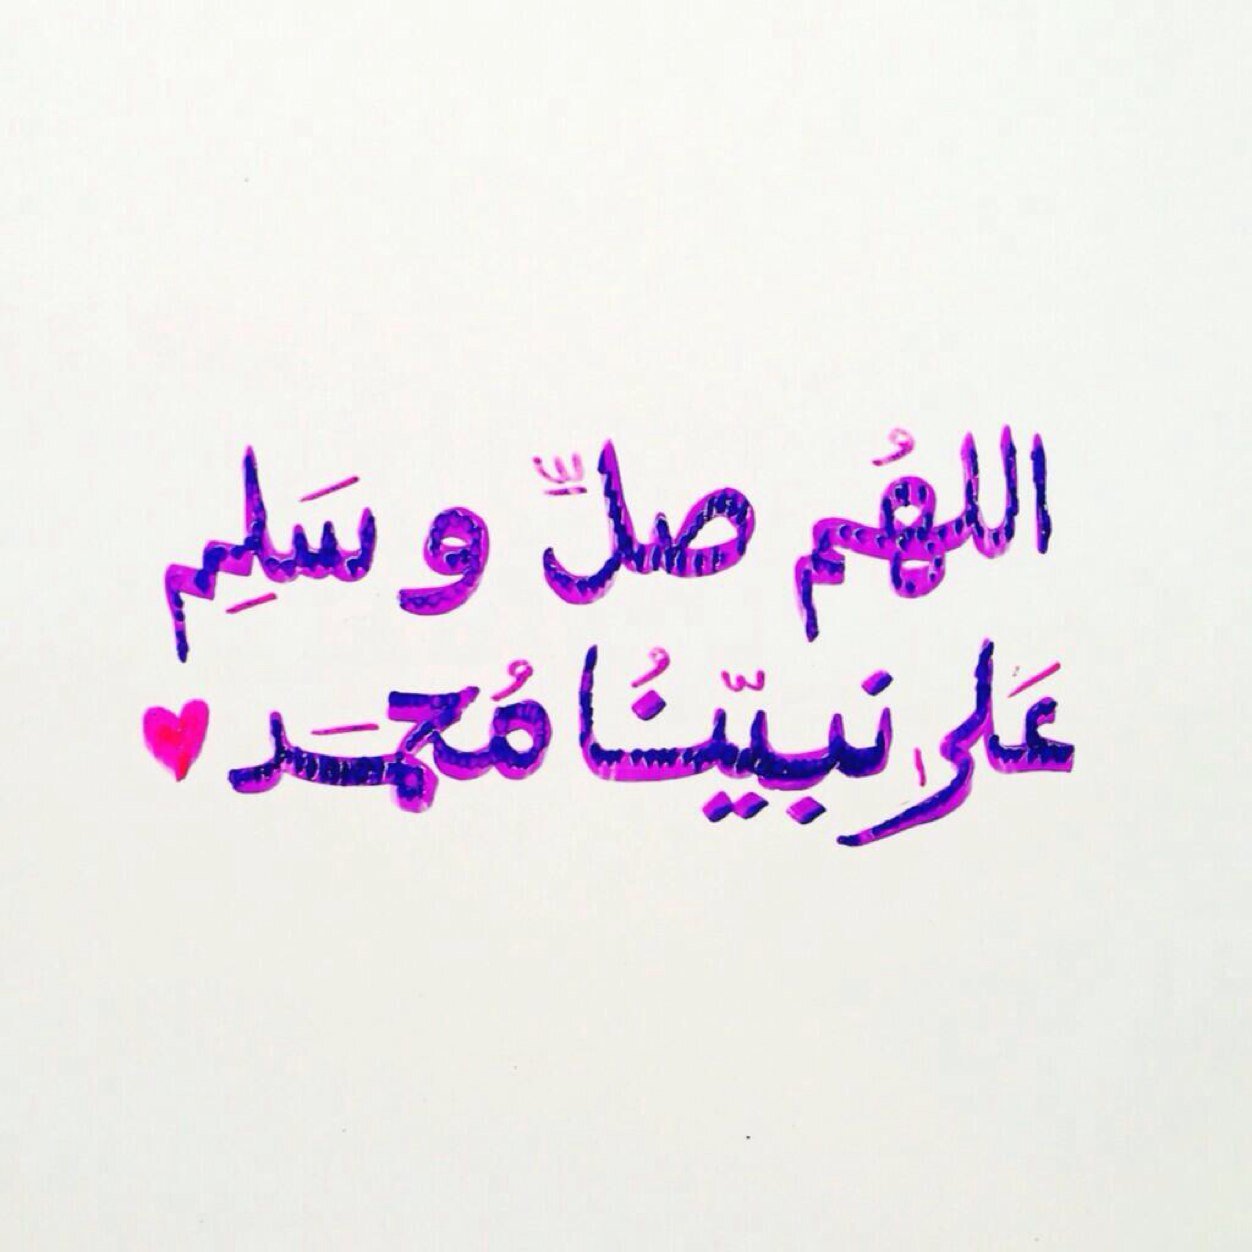 اللهُم صلِّ و سَلِم
عَلى نبيّنُا مُحمَد ♥